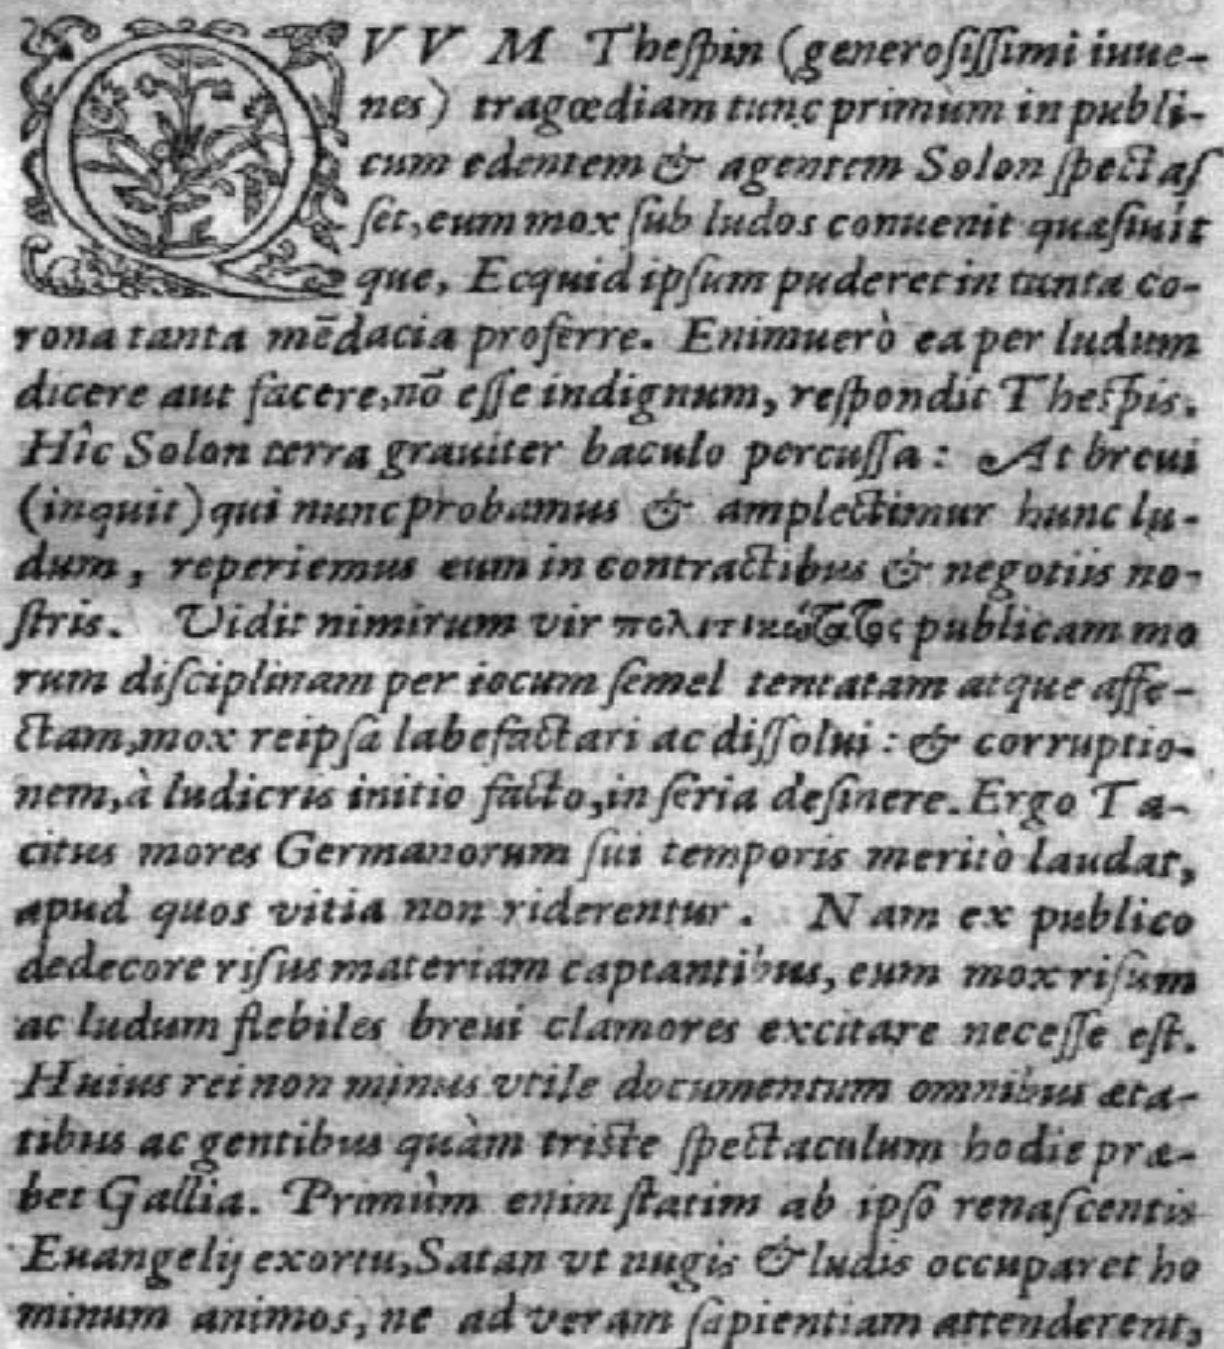 QVVM Theſpin (generoſiſſimi iuue-
nes) tragœdiam tunc primùm in publi-
cum edentem & agentem Solon ſpectaſ
ſet, eum mox ſub ludos conuenit quæſiuit
que, Ecquid ipſum puderet in tanta co-
rona tanta mēdacia proferre. Enimuerò ea per ludum
dicere aut facere, nō eſſe indignum, reſpondit Theſpis.
Hîc Solon terra grauiter baculo percuſſa: At breui
(inquit) qui nunc probamus & amplectimur hunc lu-
dum, reperiemus eum in contractibus & negotiis no-
ſtris. Vidit nimirum vir πολιτικώτατος publicam mo
rum diſciplinam per iocum ſemel tentatam atque affe-
ctam, mox reipſa labefactari ac diſſolui: & corruptio-
nem, à ludicris initio facto, in ſeria deſinere. Ergo Ta-
citus mores Germanorum ſui temporis meritò laudat,
apud quos vitia non riderentur. Nam ex publico
dedecore riſus materiam captantibus, eum mox riſum
ac ludum flebiles breui clamores excitare neceſſe eſt.
Huius rei non minus vtile documentum omnibus æta-
tibus ac gentibus quàm triſte ſpectaculum hodie præ-
bet Gallia. Primùm enim ſtatim ab ipſo renaſcentis
Euangelij exortu, Satan vt nugis & ludis occuparet ho
minum animos, ne ad veram ſapientiam attenderent,